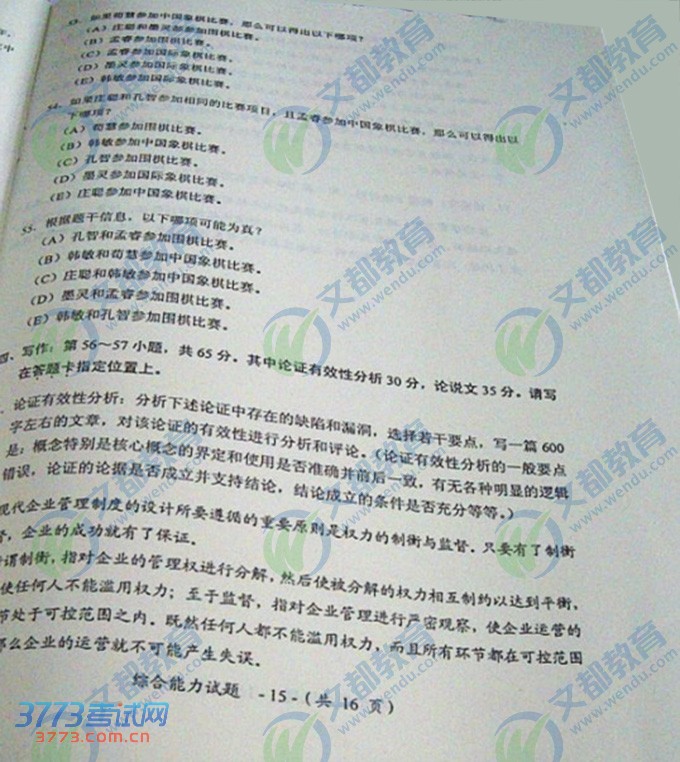 53. 如果荀慧参加中国象棋比赛，那么可以得出以下哪项？
(A) 庄聪和墨灵都参加围棋比赛。
(B) 孟睿参加围棋比赛。
(C) 孟睿参加国际象棋比赛。
(D) 墨灵参加国际象棋比赛。
(E) 韩敏参加国际象棋比赛。
54. 如果庄聪和孔智参加相同的比赛项目，且孟睿参加中国象棋比赛，那么可以得出以
下哪项？
(A) 荀慧参加围棋比赛。
(B) 韩敏参加中国象棋比赛。
(C) 孔智参加围棋比赛。
(D) 墨灵参加国际象棋比赛。
(E) 庄聪参加中国象棋比赛。
55. 根据题干信息，以下哪项可能为真？
(A) 孔智和孟睿参加围棋比赛。
(B) 韩敏和荀慧参加中国象棋比赛。
(C) 庄聪和韩敏参加中国象棋比赛。
(D) 墨灵和孟睿参加围棋比赛。
(E) 韩敏和孔智参加围棋比赛。
四、写作：第 56～57 小题，共 65 分。其中论证有效性分析 30 分，论说文 35 分。请写
在答题卡指定位置上。
论证有效性分析：分析下述论证中存在的缺陷和漏洞，选择若干要点，写一篇 600
字左右的文章，对该论证的有效性进行分析和评论。（论证有效性分析的一般要点
是：概念特别是核心概念的界定和使用是否准确并前后一致，有无各种明显的逻辑
错误，论证的论据是否成立并支持结论，结论成立的条件是否充分等等。）
现代企业管理制度的设计所要遵循的重要原则是权力的制衡与监督。只要有了制衡
督，企业的成功就有了保证。
谓制衡，指对企业的管理权进行分解，然后使被分解的权力相互制约以达到平衡，
使任何人不能滥用权力；至于监督，指对企业管理进行严密观察，使企业运营的
节处于可控范围之内。既然任何人都不能滥用权力，而且所有环节都在可控范围
那么企业的运营就不可能产生失误。
综合能力试题 - 15 - （共 16 页）
3773考试网
3773.com.cn
文都教育
www.wendu.com
文都教育
www.wendu.com
文都教育
www.wendu.com
文都教育
www.wendu.com
文都教育
www.wendu.com
文都教育
www.wendu.com
文都教育
www.wendu.com
文都教育
www.wendu.com
文都教育
www.wendu.com
文都教育
www.wendu.com
文都教育
www.wendu.com
文都教育
www.wendu.com